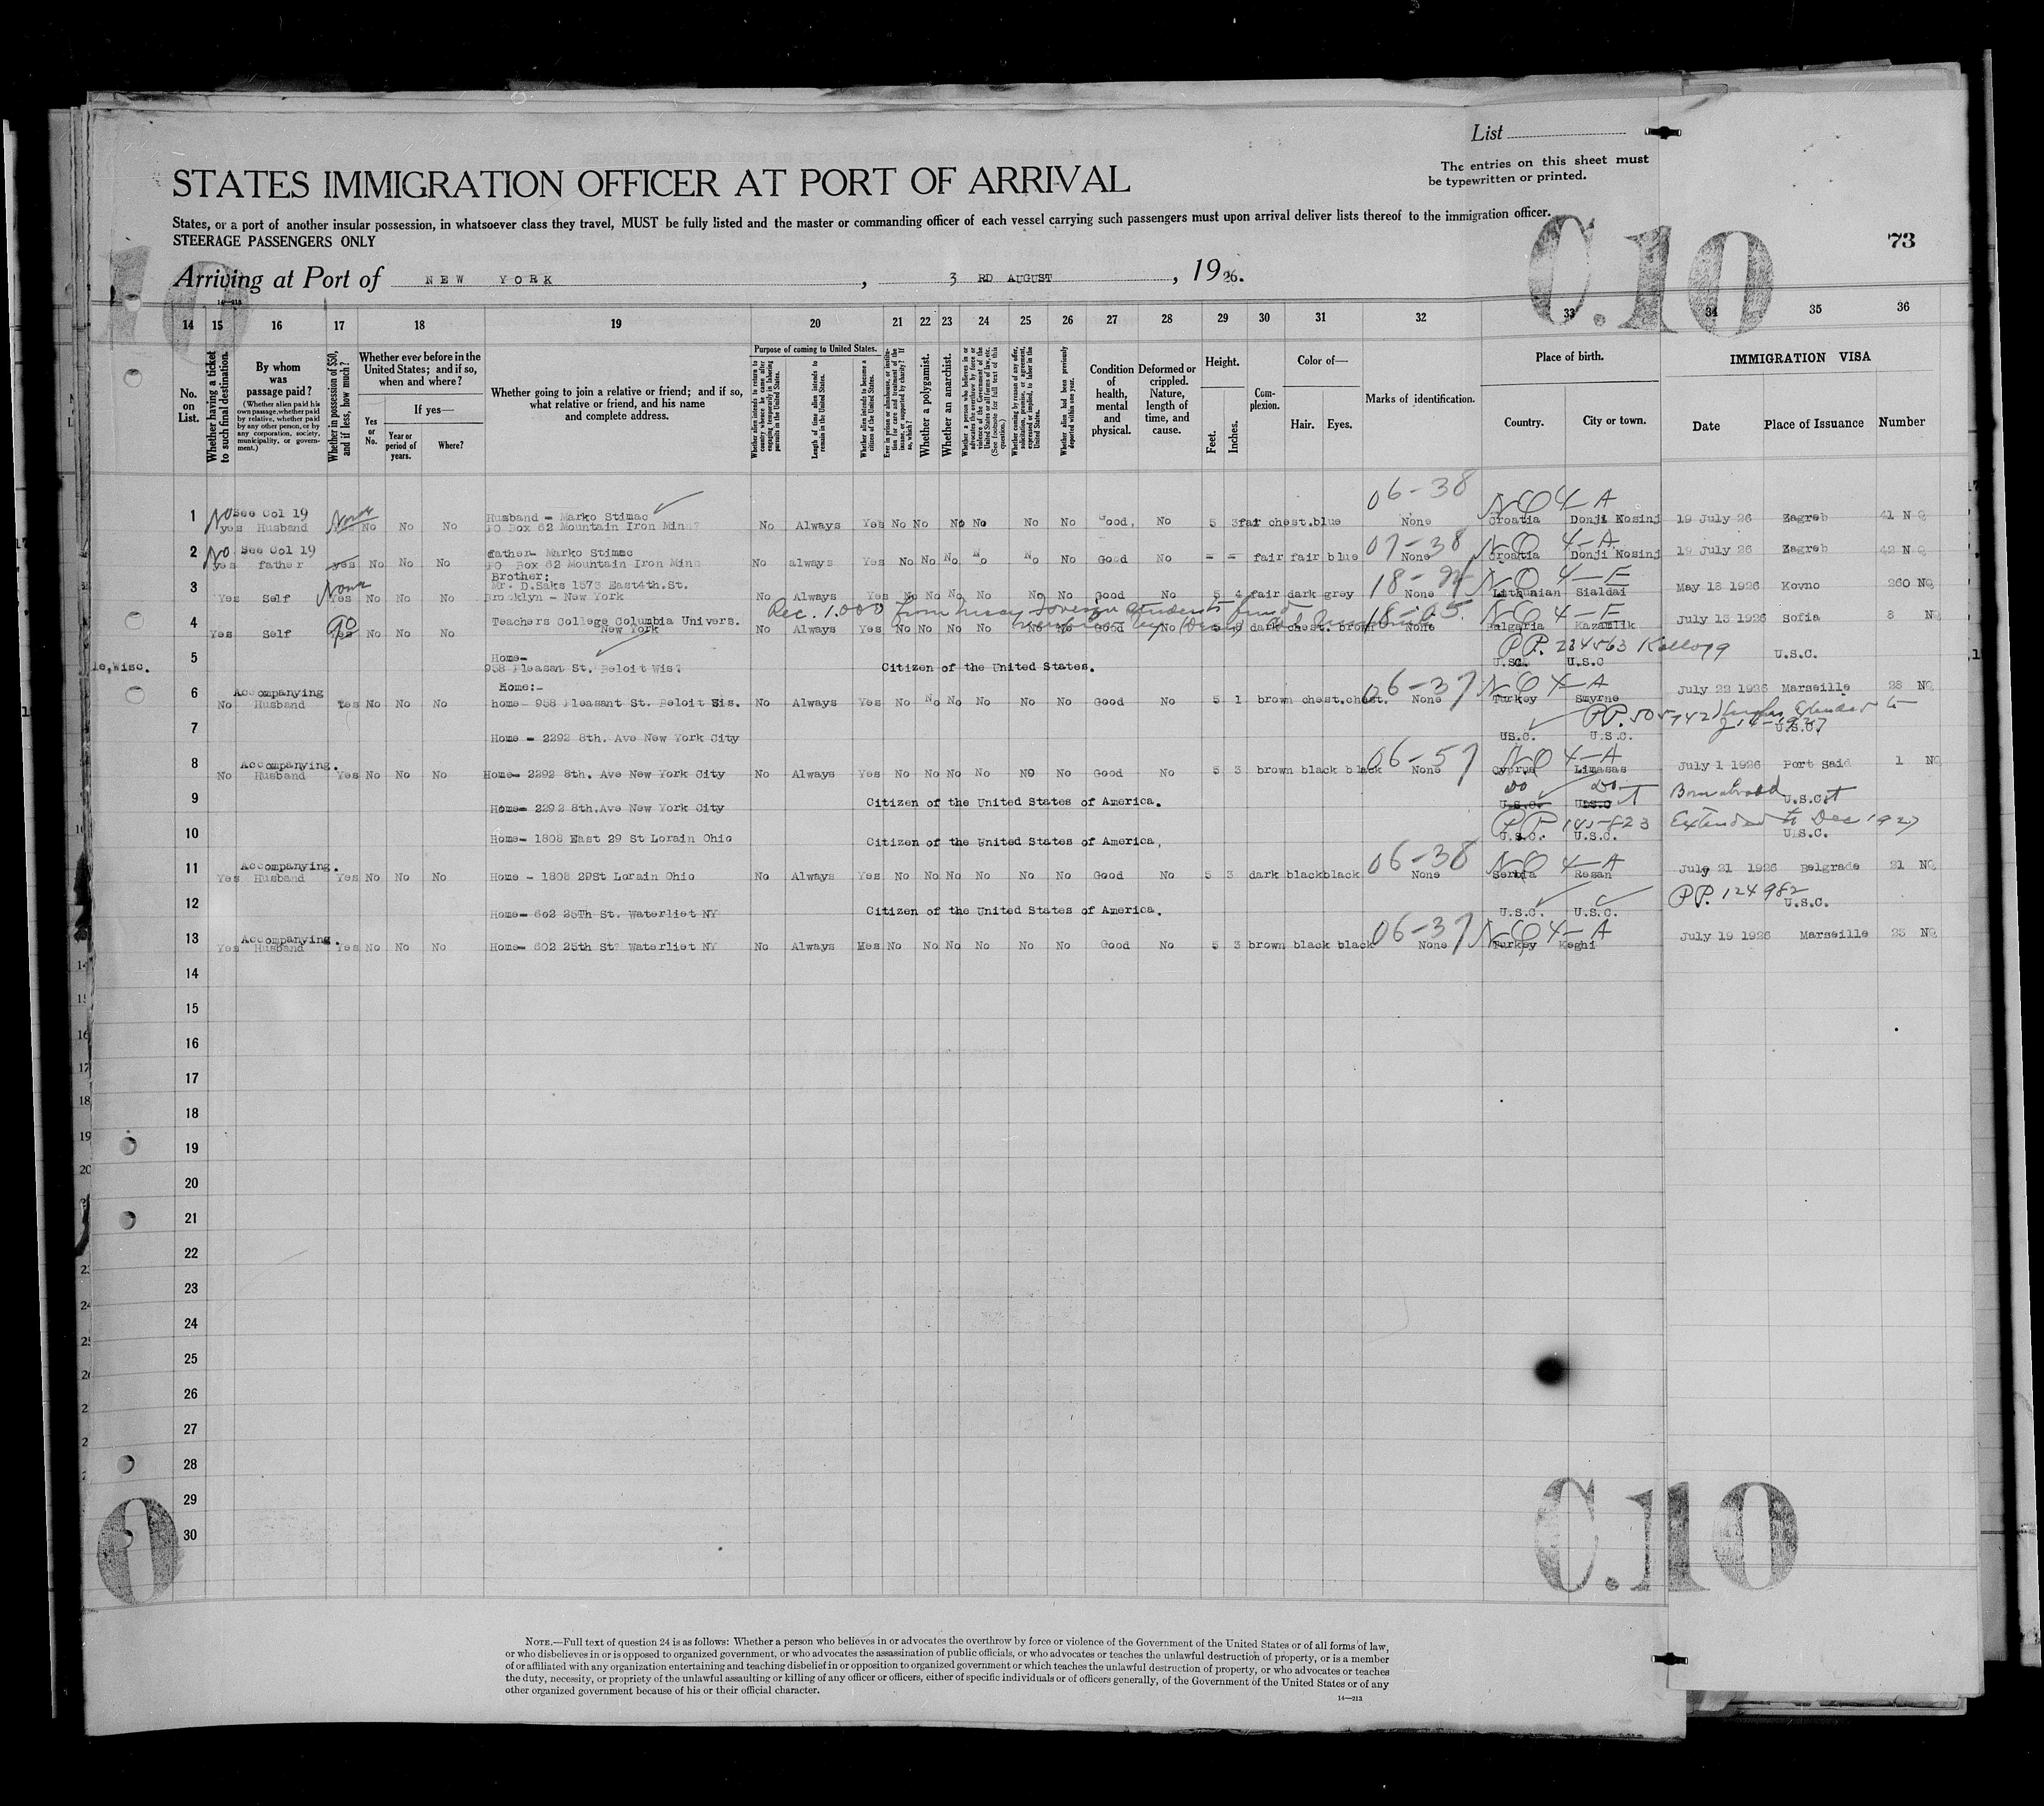 List
The entries on this sheet must
be typewritten or printed.
STATES IMMIGRATION OFFICER AT PORT OF ARRIVAL
States, or a port of another insular possession, in whatsoever class they travel, MUST be fully listed and the master or commanding officer of each vessel carrying such passengers must upon arrival deliver lists thereof to the immigration officer.
STEERAGE PASSENGERS ONLY
C.10
73
Arriving at Port of NEW YORK, 3 RD AUGUST, 1926.
14 15 16 17 18 19 20 21 22 23 24 25 26 27 28 29 30 31 32 33 34 35 36
No. on List.
Whether having a ticket to such final destination.
By whom was passage paid?
(Whether alien paid his own passage, whether paid by relative, whether paid by any other person, or by any corporation, society, municipality, or government.)
Whether in possession of $50, and if less, how much?
Whether ever before in the United States; and if so, when and where?
Yes or No.
If yes—
Year or period of years.
Where?
Whether going to join a relative or friend; and if so, what relative or friend, and his name and complete address.
Purpose of coming to United States.
Length of time alien intends to remain in the United States.
Whether alien intends to become a citizen of the United States.
Whether a polygamist.
Whether an anarchist.
Condition of health, mental and physical.
Deformed or crippled. Nature, length of time, and cause.
Height.
Feet.
Inches.
Complexion.
Color of—
Hair. Eyes.
Marks of identification.
Place of birth.
Country. City or town.
IMMIGRATION VISA
Date Place of Issuance Number
06-38 NQ 4-A
1 No See Col 19 None Husband - Marko Stimac
yes Husband Yes No No No PO Box 62 Mountain Iron Minn? No Always Yes No No No No No No Good, No 5 3 fair chest. blue None Croatia Donji Kosinj 19 July 26 Zagreb 41 NQ
07-38 NQ 4-A
2 No See Col 19 father- Marko Stimac
yes father yes No No No PO Box 62 Mountain Iron Minn No always Yes No No No No No No Good No - - fair fair blue None Croatia Donji Kosinj 19 July 26 Zagreb 42 NQ
3 None Brother: 18- NQ 4-E
Mr. D.Saks 1573 East4th.St.
Yes Self Yes No No No Brooklyn - New York No Always Yes No No No No No No Good No 5 4 fair dark grey None Lithunian Sialdai May 18 1926 Kovno 260 NQ
Rec. 1.000 from foreign students fund
4 90 Teachers College Columbia Univers. 18-05. NQ 4-E
Yes Self Yes No No No New York No Always Yes No No No No No No Good No 5 dark chest. brown None Bulgaria Kazanlik July 13 1926 Sofia 8 NQ
P.P. 234563 Kellogg
le,Wisc.
5 Home-
958 Pleasan St. Beloit Wis? Citizen of the United States. U.S.C. U.S.C U.S.C.
6 Accompanying Home:- 06-37 NQ 4-A
No Husband Yes No No No home- 958 Pleasant St. Beloit Wis. No Always Yes No No No No No No Good No 5 1 brown chest. chest. None Turkey Smyrne July 22 1926 Marseille 28 NQ
P.P. 505742 Extended to
7 Home - 2292 8th. Ave New York City U.S.C. U.S.C. U.S.C.
8 Accompanying. 06-57 NQ 4-A
No Husband Yes No No No Home- 2292 8th. Ave New York City No Always Yes No No No No No No Good No 5 3 brown black black None Cyprus Limasas July 1 1926 Port Said 1 NQ
Do Do
9 Home- 2292 8th.Ave New York City Citizen of the United States of America. U.S.C. U.S.C Born abroad U.S.C.
PP 145823 Extended to Dec 1927
10 Home- 1808 East 29 St Lorain Ohio Citizen of the United States of America, U.S.C. U.S.C. U.S.C.
11 Accompanying. 06-38 NQ 4-A
Yes Husband Yes No No No Home - 1808 29St Lorain Ohio No Always Yes No No No No No No Good No 5 3 dark black black None Serbia Resan July 21 1926 Belgrade 21 NQ
P.P. 124982
12 Home- 602 25Th St. Waterliet NY Citizen of the United States of America. U.S.C. U.S.C. U.S.C.
13 Accompanying. 06-37 NQ 4-A
Yes Husband Yes No No No Home- 602 25th St? Waterliet NY No Always Mes No No No No No No Good No 5 3 brown black black None Turkey Keghi July 19 1926 Marseille 25 NQ
14
15
16
17
18
19
20
21
22
23
24
25
26
27
28
29
30
C.110
NOTE.—Full text of question 24 is as follows: Whether a person who believes in or advocates the overthrow by force or violence of the Government of the United States or of all forms of law,
or who disbelieves in or is opposed to organized government, or who advocates the assassination of public officials, or who advocates or teaches the unlawful destruction of property, or is a member
of or affiliated with any organization entertaining and teaching disbelief in or opposition to organized government or which teaches the unlawful destruction of property, or who advocates or teaches
the duty, necessity, or propriety of the unlawful assaulting or killing of any officer or officers, either of specific individuals or of officers generally, of the Government of the United States or of any
other organized government because of his or their official character.
14—213